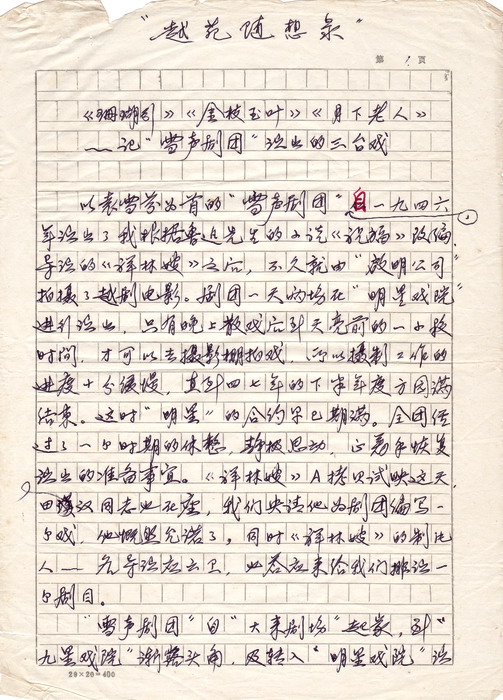 “越苑随想录”
第 1 页
《珊瑚引》《金枝玉叶》《月下老人》
——记“雪声剧团”演出的三台戏
以袁雪芬为首的“雪声剧团”自一九四六
年演出了我根据鲁迅先生的小说《祝福》改编、
导演的《祥林嫂》之后，不久就由“启明公司”
拍摄了越剧电影。剧团一天两场在“明星戏院”
进行演出，只有晚上散戏后到天亮前的一小段
时间，才可以去摄影棚拍戏，所以摄制工作的
进度十分缓慢，直到四七年的下半年度方圆满
结束。这时“明星”的合约早已期满。全团经
过了一个时期的休整，静极思动，正着手恢复
演出的准备事宜。《祥林嫂》A拷贝试映这天，
田汉同志也在座，我们央请他为剧团编写一
个戏，他慨然允诺了。同时《祥林嫂》的制片
人——名导演应云卫，也答应来给我们排演一
个剧目。
“雪声剧团”自“大来剧场”起家，到“
九星戏院”渐露头角，及转入“明星戏院”演
20×20=400